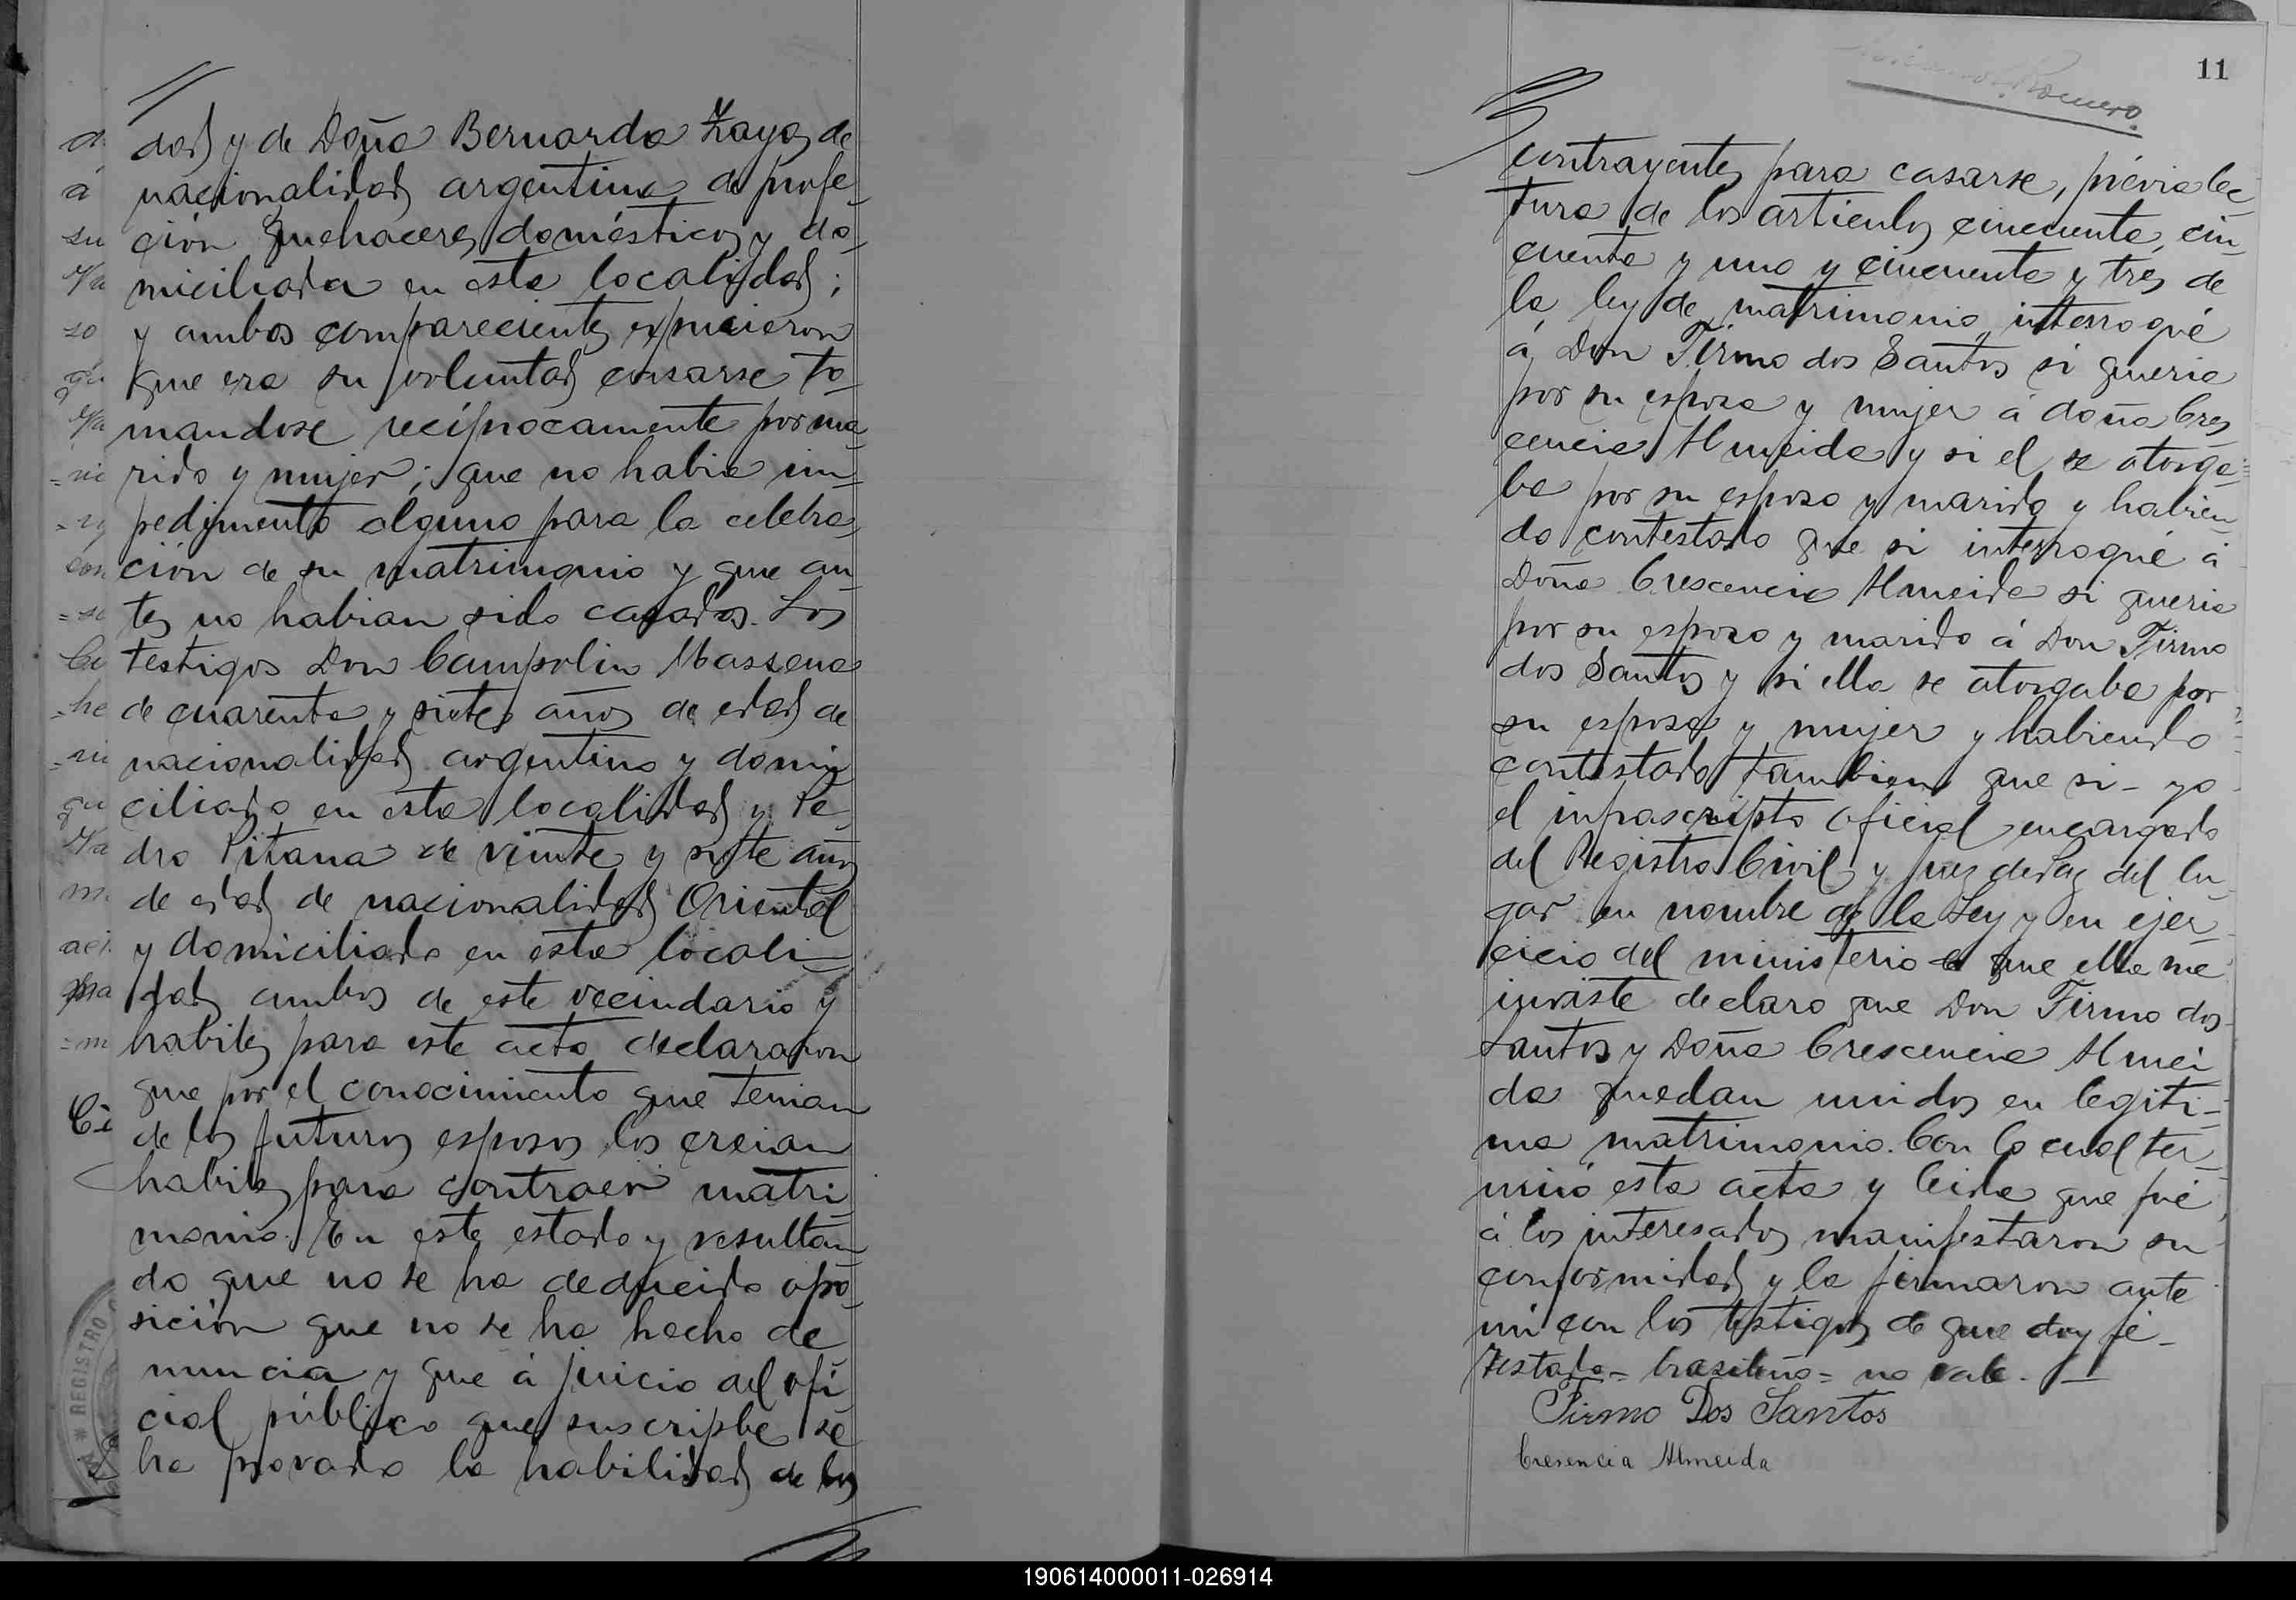 dad y de Doña Bernarda Zaya, de
nacionalidad argentina de profe-
ción quehaceres domésticos y do-
miciliada en esta localidad;
y ambos comparecientes expucieron
que era su voluntad casarse to-
mandose recíprocamente por ma-
rido y mujer; que no habia im-
pedimento alguno para la celebra-
ción de su matrimonio y que an-
tes no habian sido casados. Los
testigos Don Campolin Massena
de cuarenta y siete años de edad de
nacionalidad argentino y domi-
ciliado en esta localidad y Pe-
dro Pitana de veinte y siete años
de edad de nacionalidad Oriental
y domiciliado en esta locali-
dad ambos de este vecindario y
habiles para este acto declararon
que por el conocimiento que tenian
de los futuros esposos los creian
habiles para contraer matri
monio. En este estado y resultan-
do que no se ha deducido opo-
sición que no se ha hecho de
nuncia y que á juicio del ofi
cial público que suscripbe se
ha provado la habilidad de los
11
Romero.
contrayentes para casarse, prévia lec-
tura de los articulos cincuenta, cin-
cuenta y uno y cincuenta y tres de
la ley de matrimonio interrogué
á Don Firmo dos Santos si queria
por su esposa y mujer á doña Cres
cencia Almeida y si el se otorga-
ba por su esposo y marido y habien-
do contestado que si interrogué á
Doña Crescencia Almeida si queria
por su esposo y marido á Don Firmo
dos Santos y si ella se otorgaba por
su esposa y mujer y habiendo
contestado tambien que si - yo
el infrascripto oficial encargado
del Registro Civil y Juez de Paz del lu-
gar en nombre de la Ley y en ejer-
cicio del ministerio que ella me
inviste declaro que Don Firmo dos
Santos y Doña Crescencia Almei
da quedan unidos en legiti-
mo matrimonio. Con lo cual ter-
minó esta acta y leida que fué
á los interesados manifestaron su
conformidad y la firmaron ante
mi con los testigos de que doy fé-
Testado = brasileño = no vale.
Firmo Dos Santos
Cresencia Almeida
REGISTRO
190614000011-026914